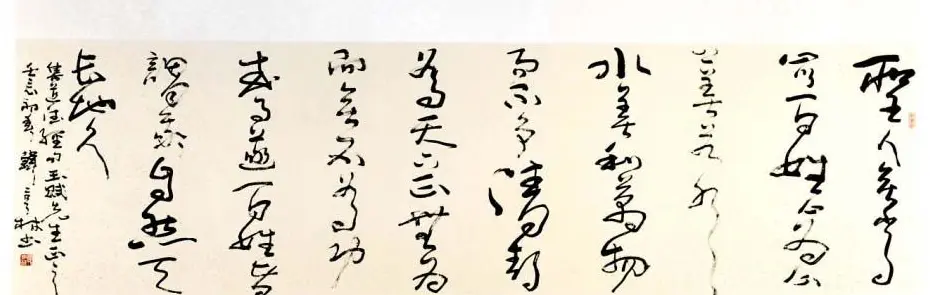 聖人無常心
以百姓心為心
上善若水
水善利萬物
而不爭清靜
為天下正無為
而無不為功
成事遂百姓皆
謂我自然天
長地久
集道德經句玉先生正之
韓林書